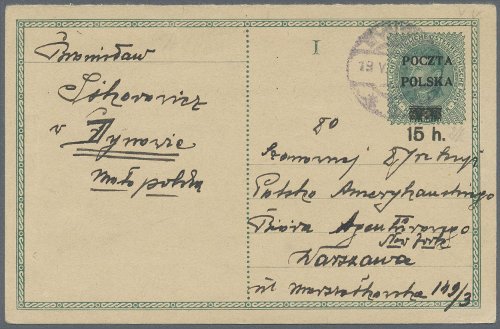 Bronisław
Sikorowicz
v Dynowie
Małopolska
I
19 V
POCZTA
POLSKA
15 h.
Do
Szanownej Dyrekcyi
Polsko Amerykańskiego
Bióra Agenturowego
New York
Warszawa
ul Marszałkowska 149/3